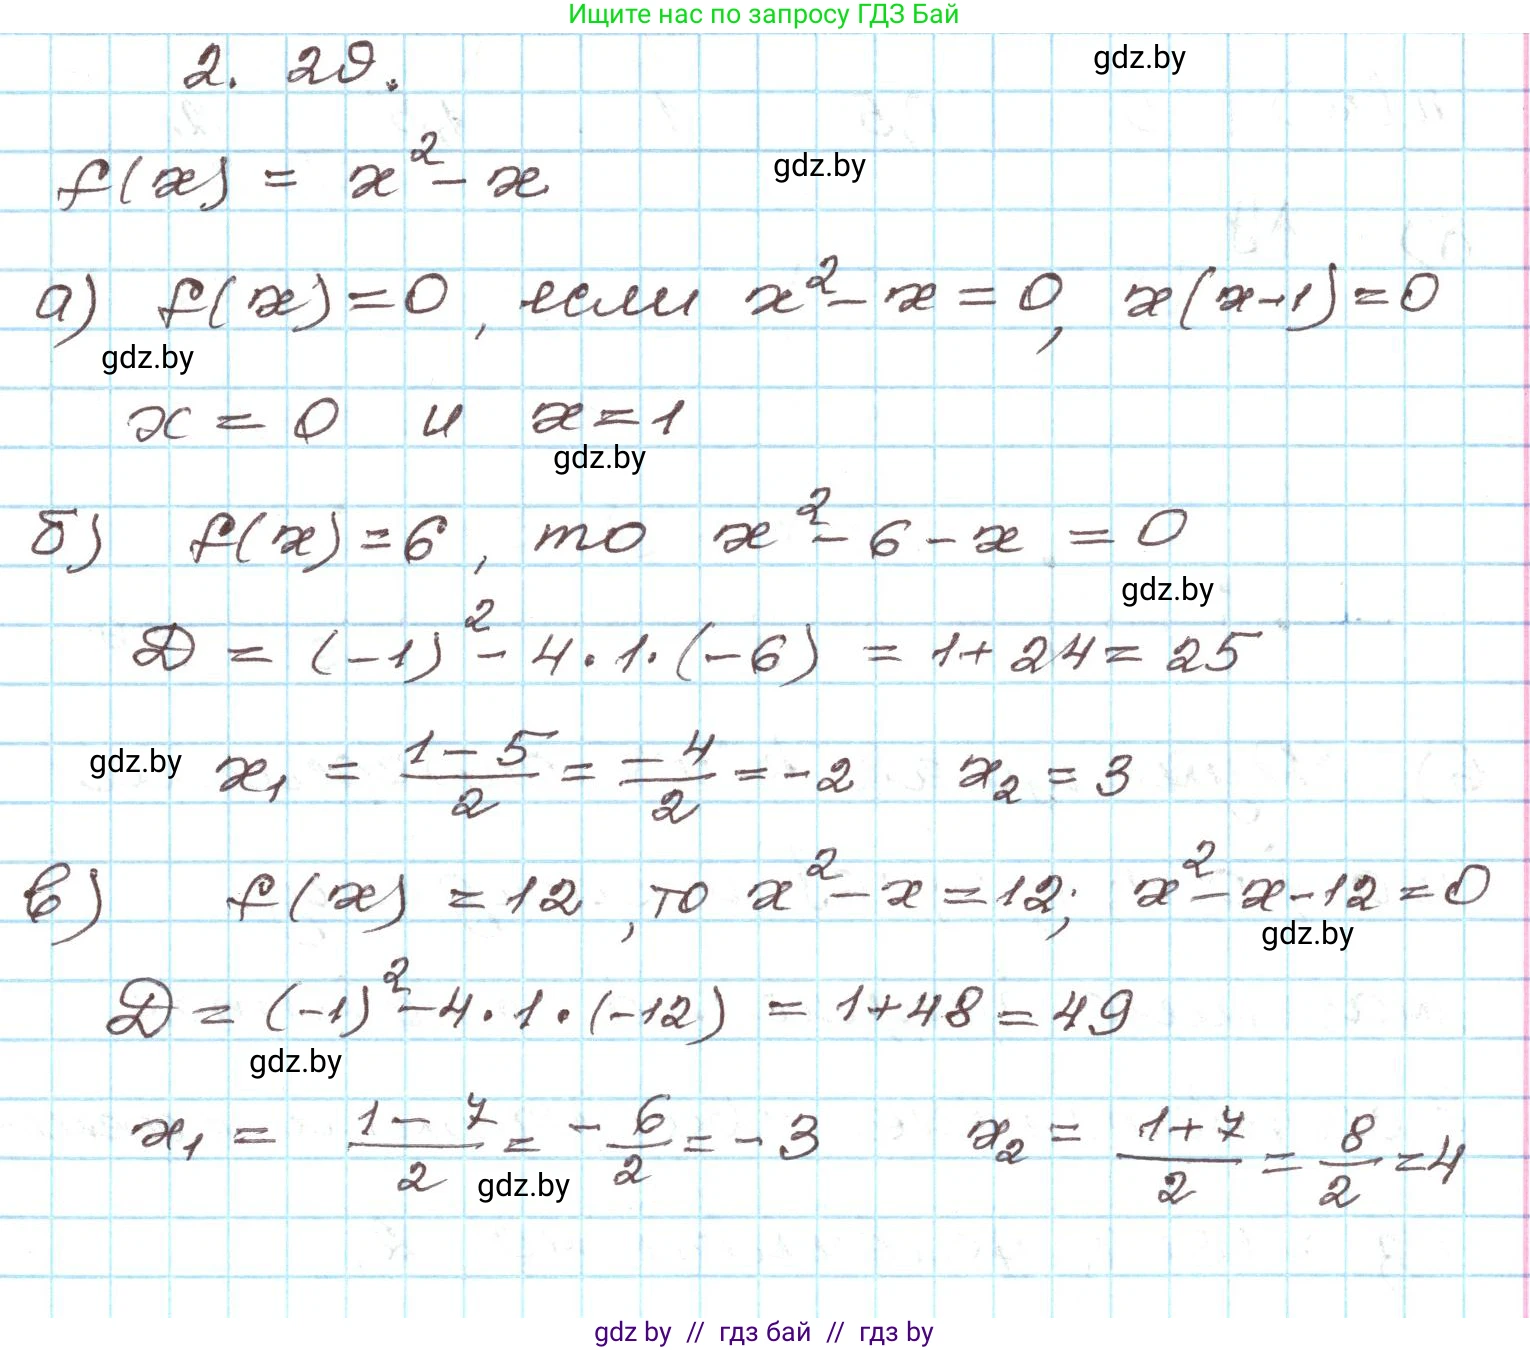 Ищите нас по запросу ГДЗ Бай
2. 29. gdz.by
f(x) = x² - x gdz.by
а) f(x) = 0, если x² - x = 0, x(x-1) = 0
gdz.by
x = 0 и x = 1
gdz.by
б) f(x) = 6, то x² - 6 - x = 0
gdz.by
Д = (-1)² - 4 · 1 · (-6) = 1 + 24 = 25
gdz.by x₁ = (1 - 5)/2 = (-4)/2 = -2 x₂ = 3
в) f(x) = 12, то x² - x = 12; x² - x - 12 = 0
gdz.by
Д = (-1)² - 4 · 1 · (-12) = 1 + 48 = 49
gdz.by
x₁ = (1 - 7)/2 = - 6/2 = - 3 x₂ = (1 + 7)/2 = 8/2 = 4
gdz.by
gdz by // гдз бай // гдз by